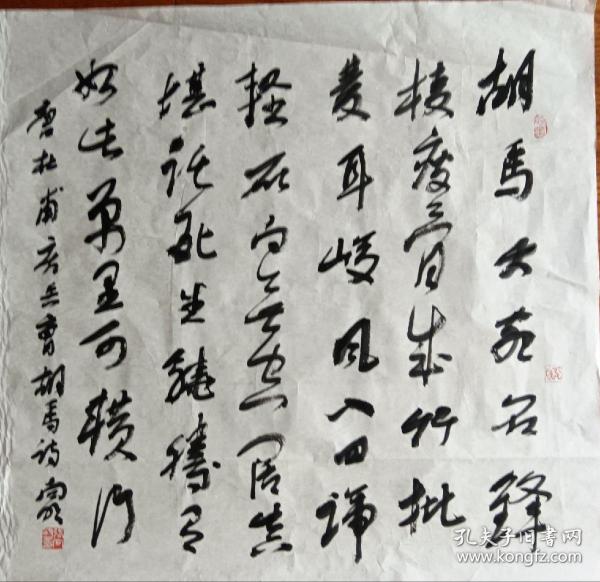 胡馬大宛名鋒
棱瘦骨成竹批
雙耳峻風入四蹄
輕所向無空闊真
堪託死生驍騰有
如此萬里可横行
唐杜甫房兵曹胡馬诗
孔夫子旧书网
www.kongfz.com